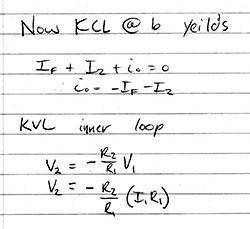 Now KCL @ b yeilds
I_F + I_2 + i_o = 0
i_o = -I_F - I_2
KVL inner loop
V_2 = - R_2/R_1 V_1
V_2 = - R_2/R_1 (I_1 R_1)